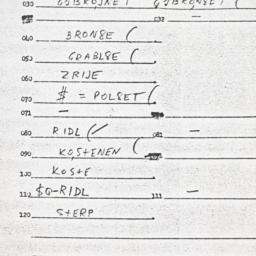 030
032 —
040 BRONSE (
050 GDABLSE (
060 ZRIJE
070 $ = POLSET (
071 —
080 RIDL (/ 081 —
090 KOSTENEN (
100 KOSTE
110 $Q-RIDL 111 —
120 STERP